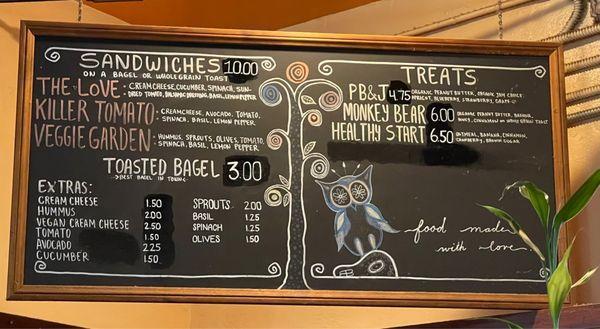 SANDWICHES 10.00
ON A BAGEL OR WHOLEGRAIN TOAST
THE LOVE: CREAM CHEESE, CUCUMBER, SPINACH, SUN-
DRIED TOMATO, BALSAMIC DRESSING, BASIL, LEMON PEPPER
KILLER TOMATO: CREAMCHEESE, AVOCADO, TOMATO,
SPINACH, BASIL, LEMON PEPPER
VEGGIE GARDEN: HUMMUS, SPROUTS, OLIVES, TOMATO,
SPINACH, BASIL, LEMON PEPPER
TOASTED BAGEL 3.00
BEST BAGEL IN TOWN
EXTRAS:
CREAM CHEESE 1.50
HUMMUS 2.00
VEGAN CREAM CHEESE 2.50
TOMATO 1.50
AVOCADO 2.25
CUCUMBER 1.50
SPROUTS 2.00
BASIL 1.25
SPINACH 1.25
OLIVES 1.50
TREATS
PB&J 4.75 ORGANIC PEANUT BUTTER, ORGANIC JAM CHOICE:
APRICOT, BLUEBERRY, STRAWBERRY, GRAPE
MONKEY BEAR 6.00 ORGANIC PEANUT BUTTER, BANANA,
HONEY, CINNAMON ON WHOLE GRAIN TOAST
HEALTHY START 6.50 OATMEAL, BANANA, CINNAMON,
CRANBERRY, BROWN SUGAR
food made
with love